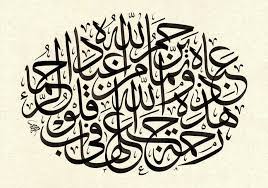 هذه رحمة جعلها الله في قلوب عباده وإنما يرحم الله من عباده الرحماء